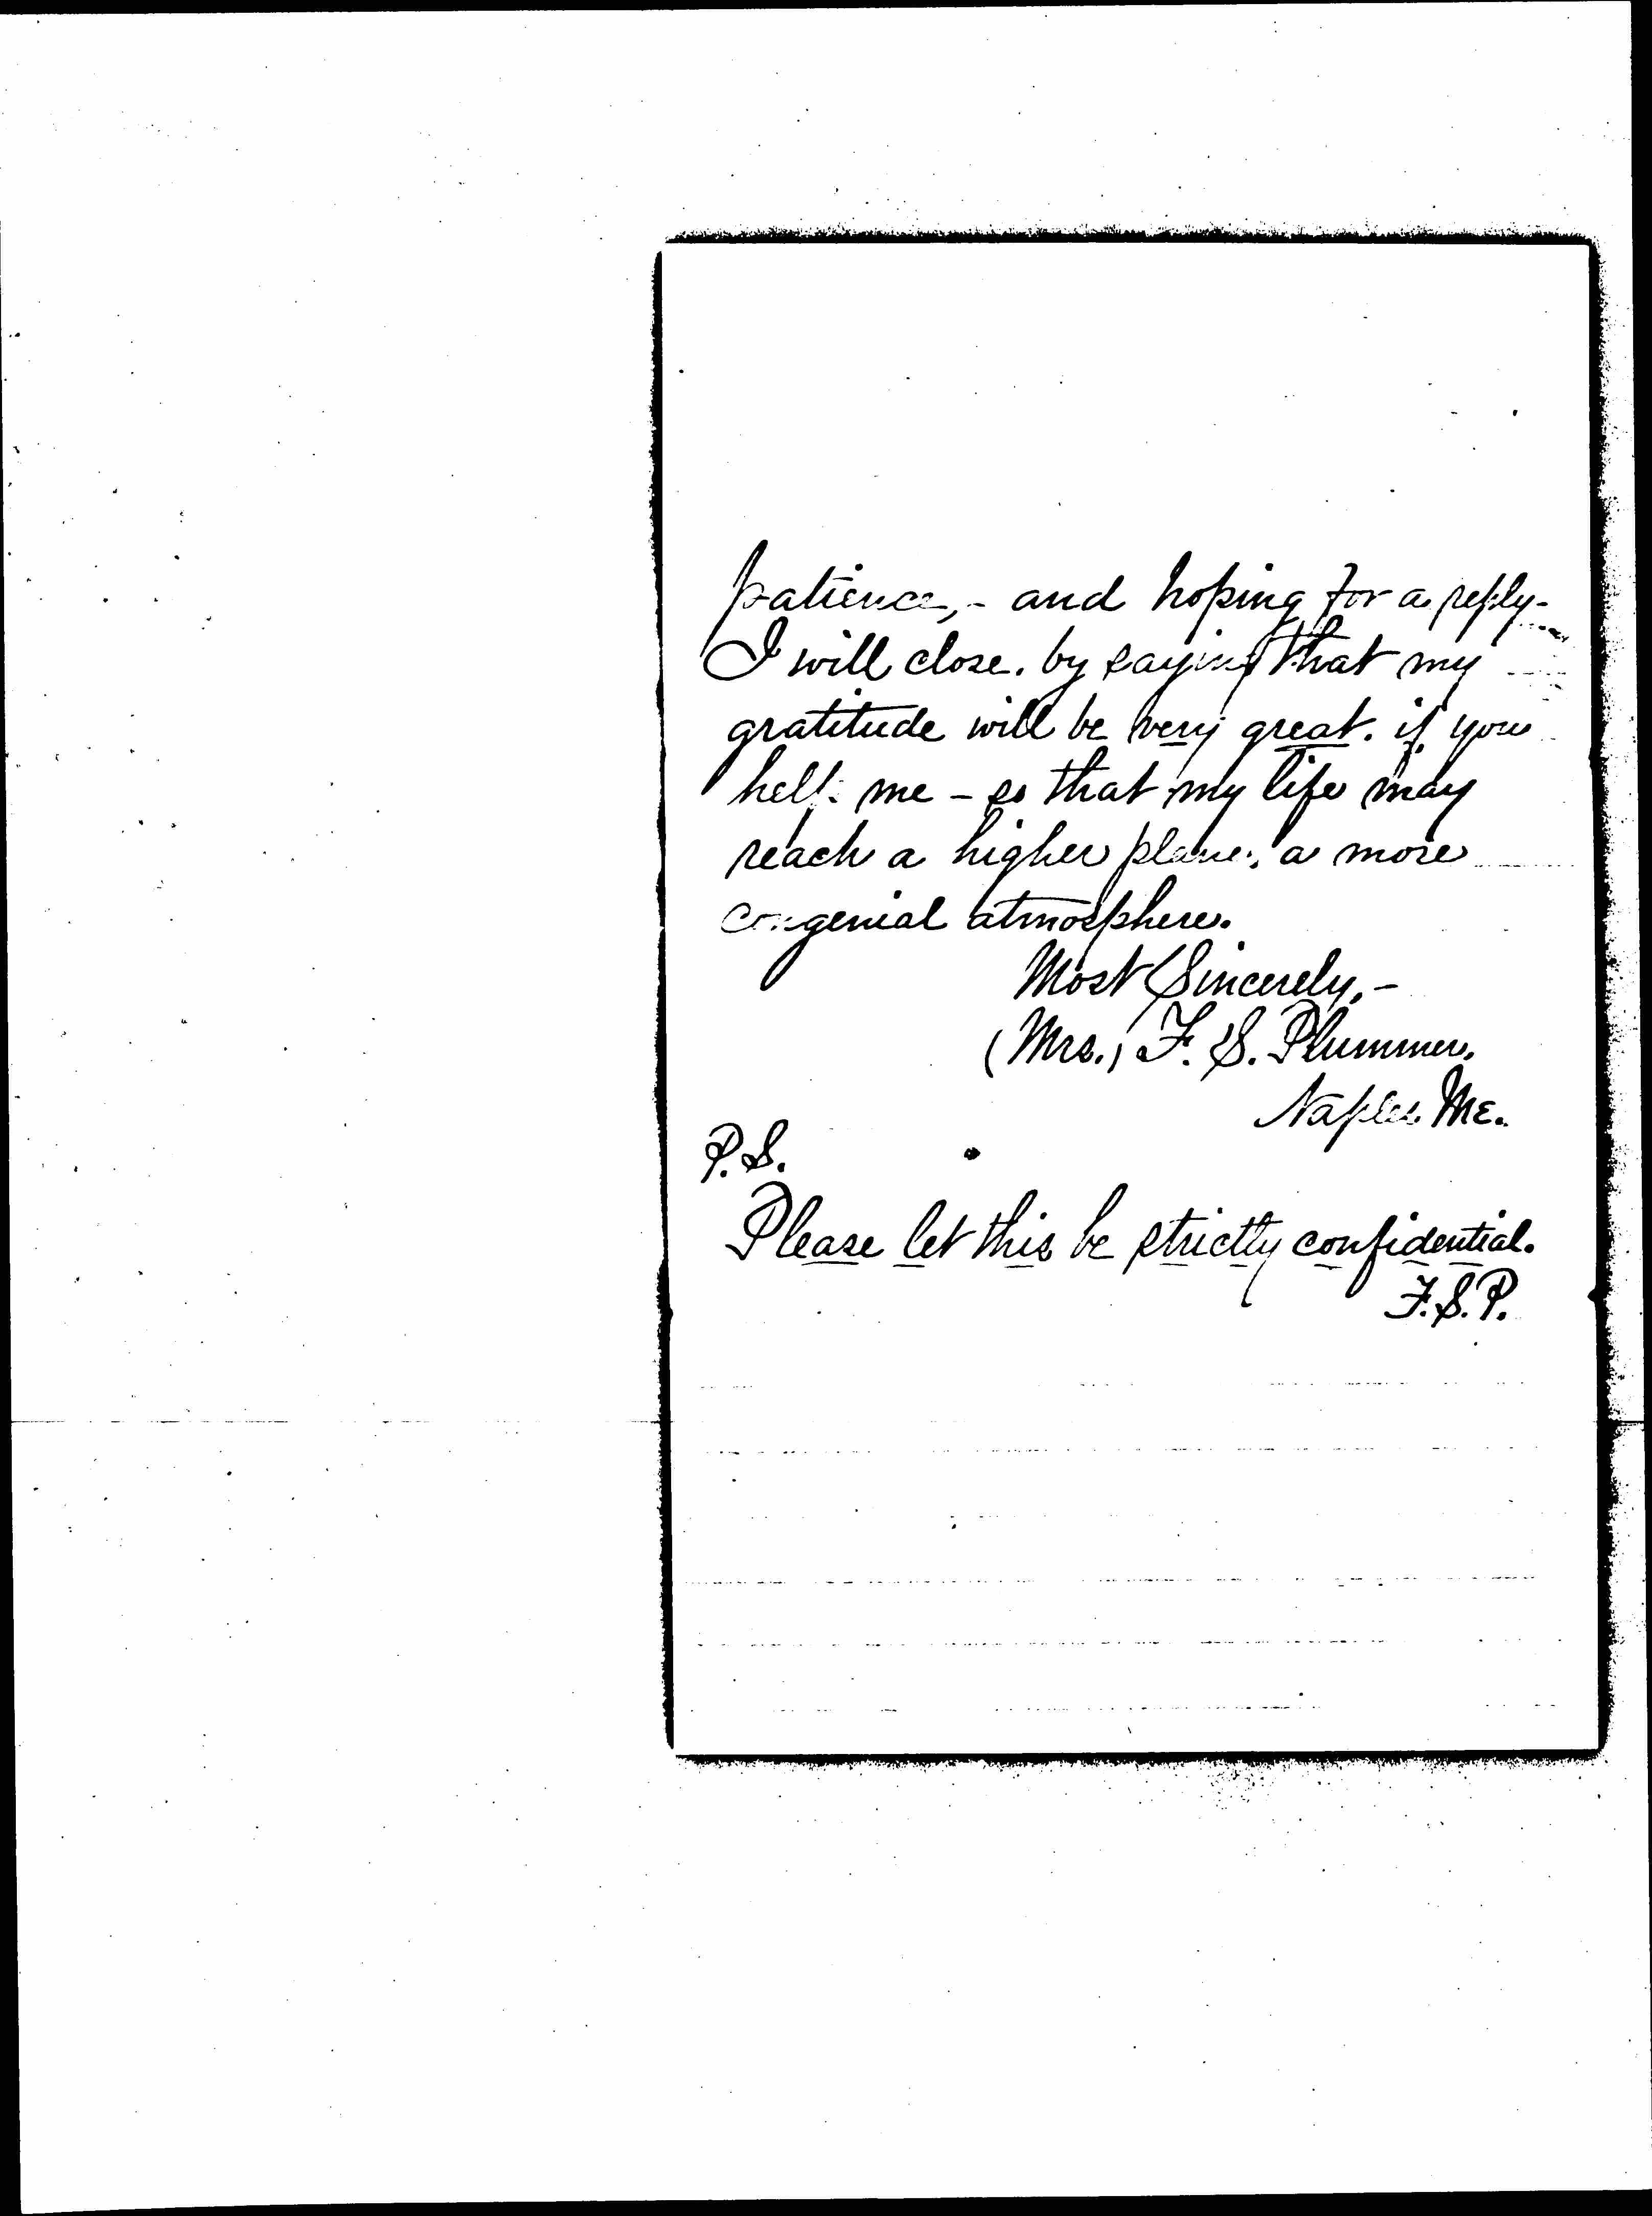 patience,- and hoping for a reply-
I will close. by saying that my
gratitude will be very great. if you
help me - so that my life may
reach a higher plane, a more
congenial atmosphere.
Most Sincerely,-
(Mrs.) F. S. Plummer.
Naples Me.
P.S.
Please let this be strictly confidential.
F.S.P.